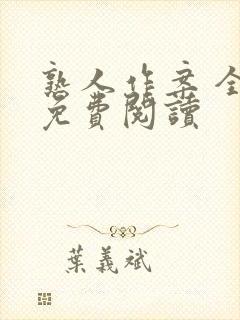 熟人作案全
免費閱讀
葉義斌